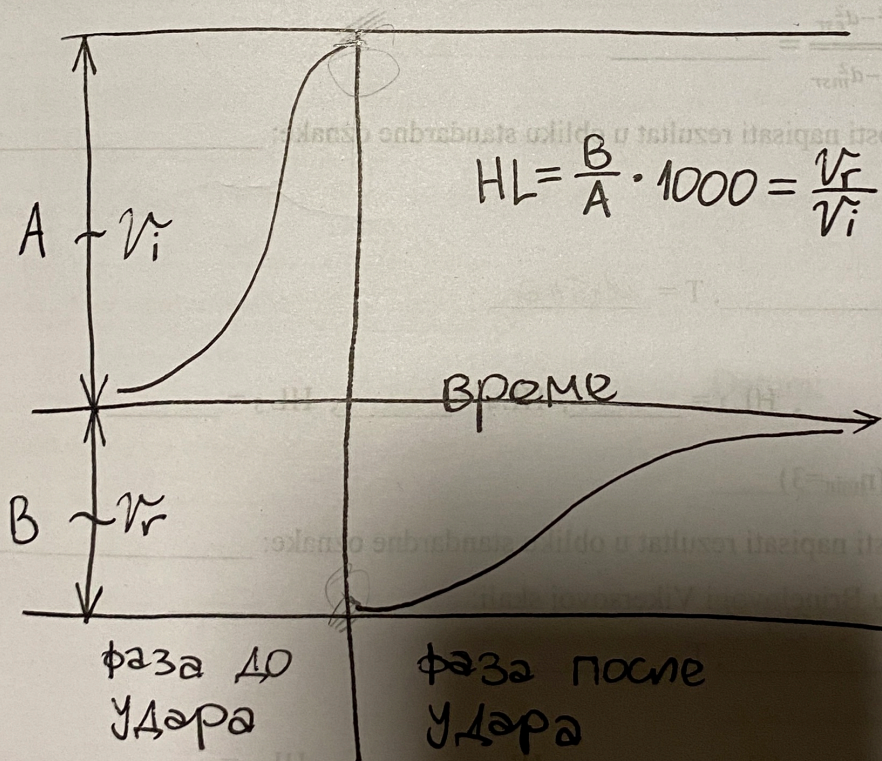 A ~ Vi
HL = B/A · 1000 = Vr/Vi
време
B ~ Vr
фаза до удара
фаза после удара